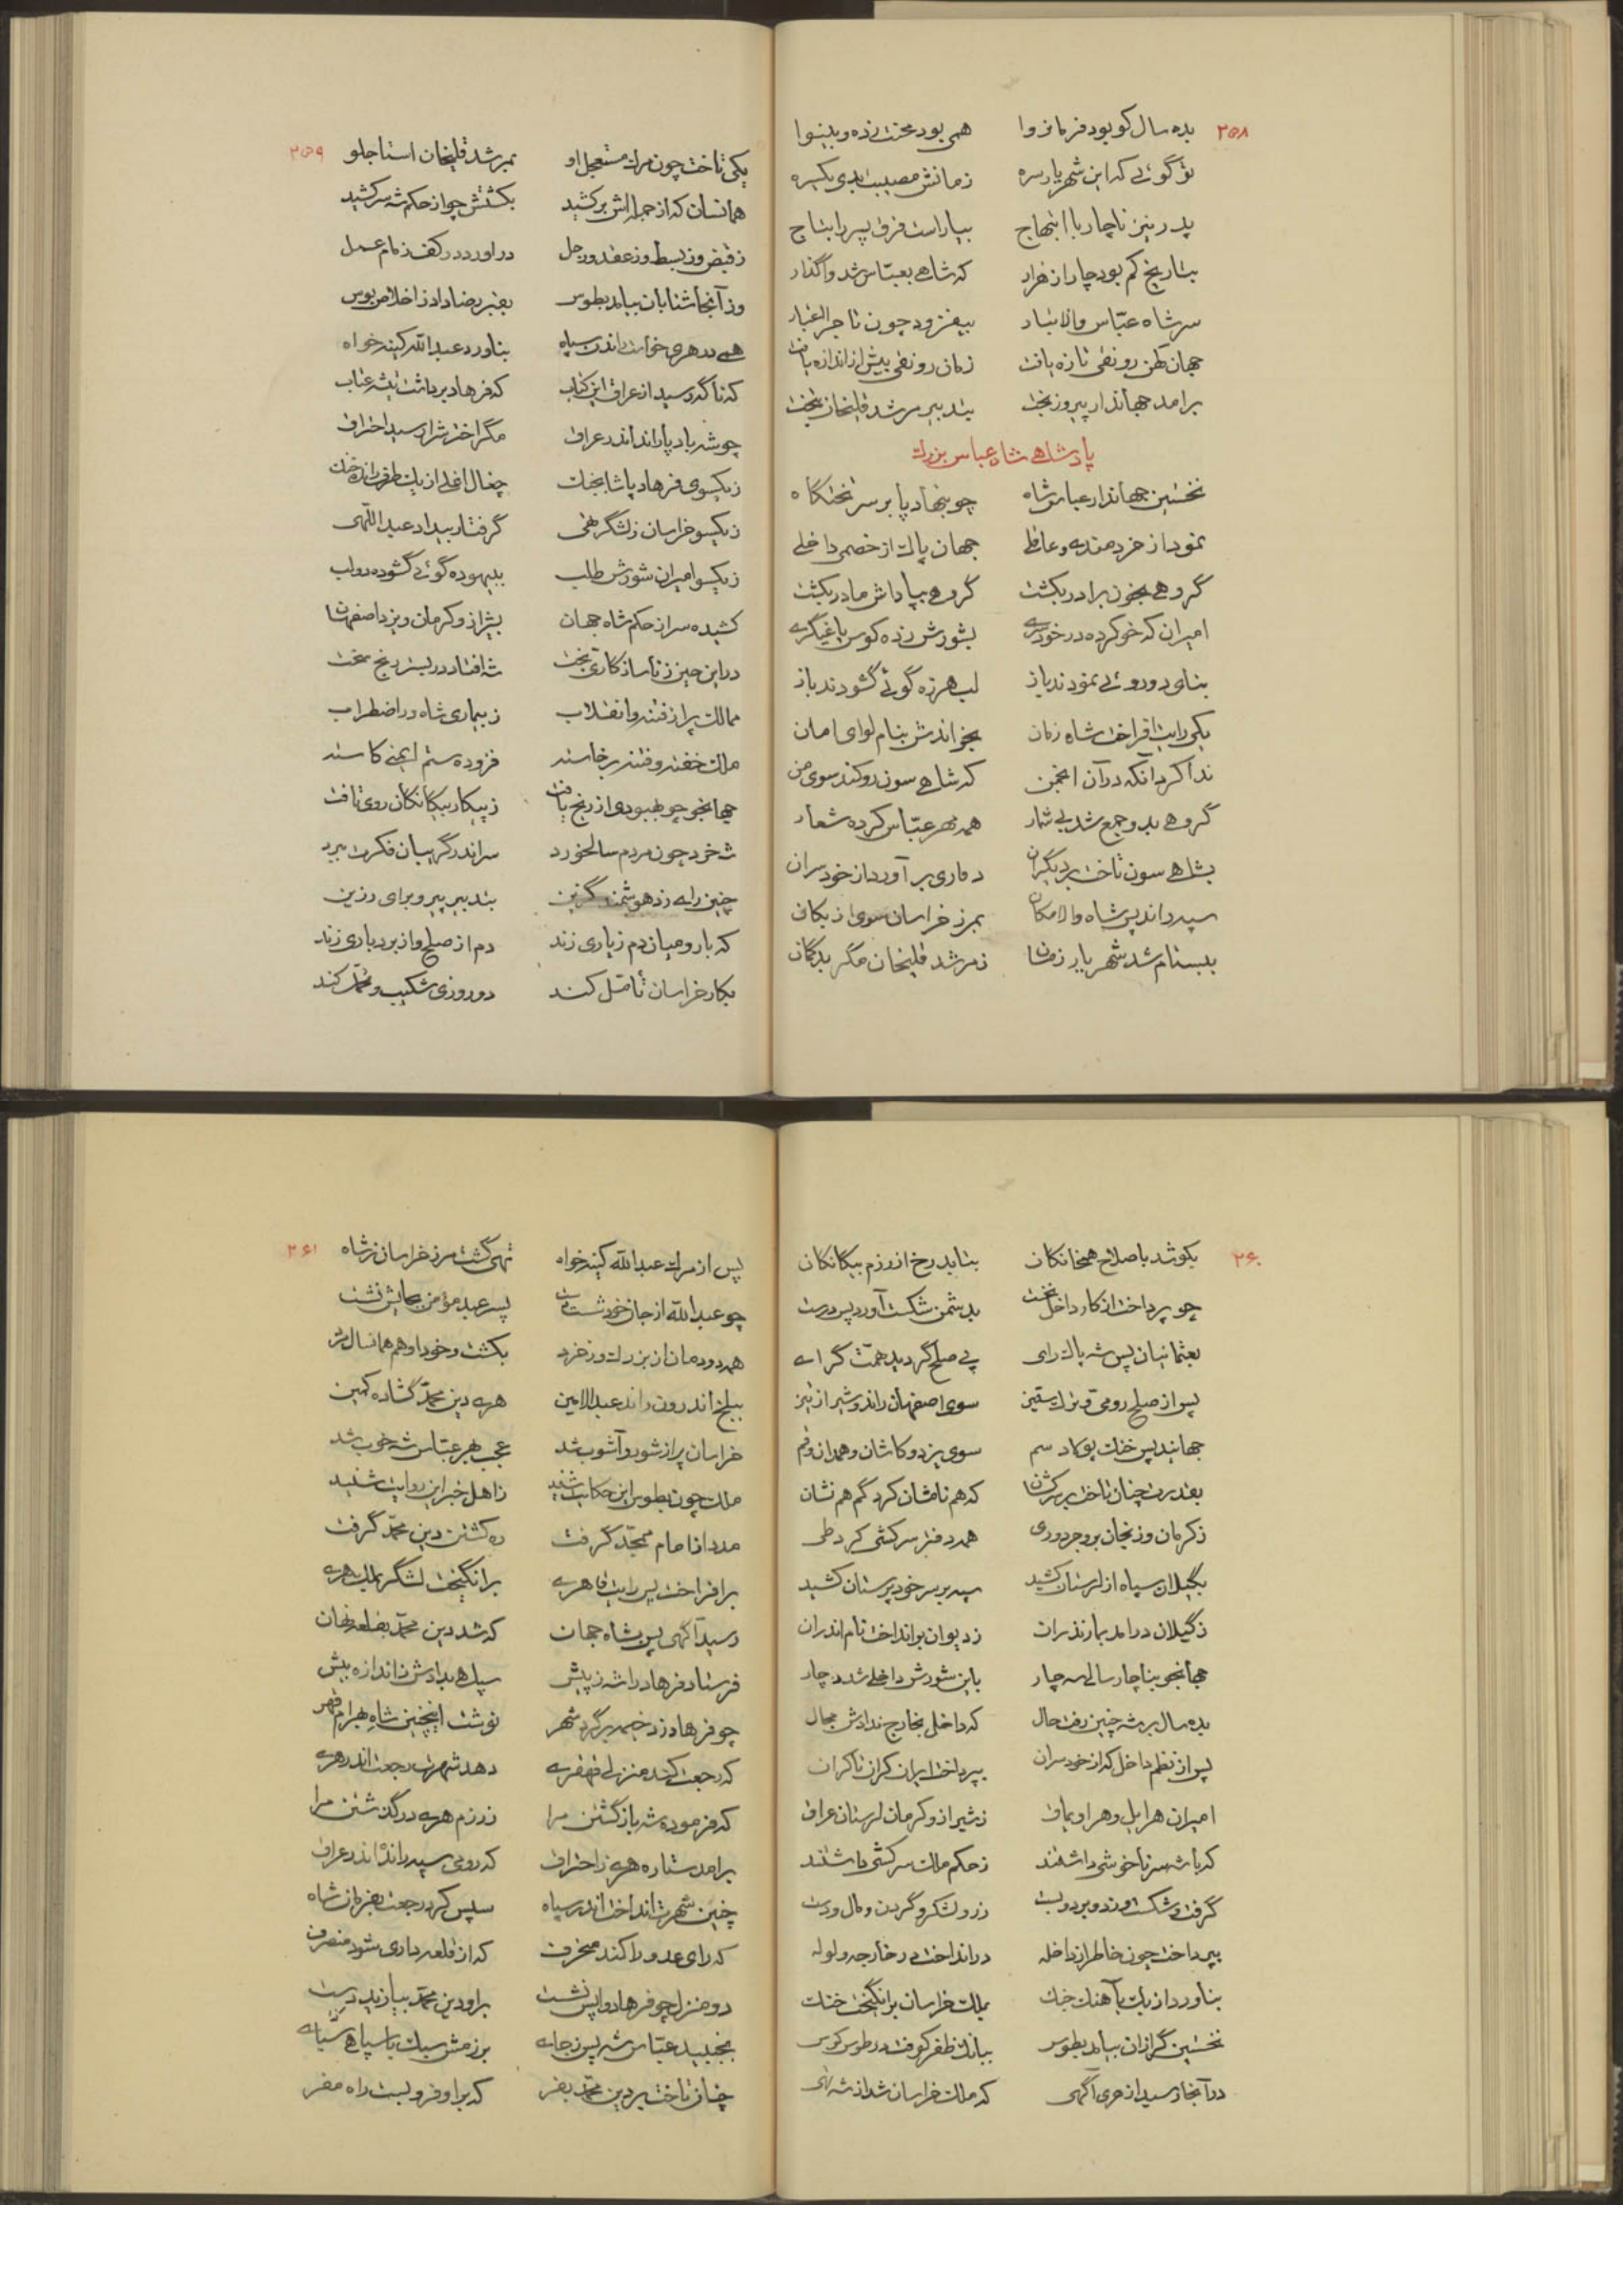 ۲۵۸
بده سال کو بود فرمانروا همی بود محنت زده و بینوا
تو گوئی که این شهریار سره زمانش مصیبت بدی یکسره
پدر نیز ناچار با ابتهاج بیاراست فرق پسر را بتاج
بتاریخ کم بود چار از هزار که شاهی بعبّاس شد واگذار
سر شاه عبّاس والا تبار بیفزود چون تاج
جهان کهن رونقی تازه یافت زمان رونقی بیش از اندازه یافت
برامد جهاندار پیروز بخت بتدبیر مرشد قلیخان بتخت
پادشاهی شاه عباس بزرك
نخستین جهاندار عباس شاه چو بنهاد پا بر سر تختگاه
نمود از خردمندی و عاقلی جهان پاك از خصمی داخلی
گروهی بخون برادر بکشت گروهی بپاداش مادر بکشت
امیران که خو کرده در خودسری بشورش زده کوس یاغیگری
بنای دوروئی نمودند باز لب هرزه گوئی گشودند باز
یکی رایت افراخت شاه زمان بخواندش بنام لوای امان
ندا کرد آنکه در آن انجمن که شاهی سون رو کند سوی من
گروهی بدو جمع شد بی شمار همه مهر عبّاس کرده شعار
بشاهی سون تاخت بر دیگران دماری بر آورد از خودسران
سپه راند پس شاه والامکان بمرز خراسان سوی ازبکان
ببسنام شد شهریار زمان ز مرشد قلیخان مگر بدگمان
۲۵۹
یکی تاخت چون مرك مستعجل او بمرشد قلیخان استاجلو
همانسان که از جمله اش برکشید بکشتش چو از حکم شه سرکشید
ز قبض و ز بسط و ز عقد و ز حل در اورد در کف زمام عمل
وز آنجا شتابان بیامد بطوس بقبر رضا داد از اخلاص بوس
همی در هری خواست راندن سپاه بناورد عبدالله کینه خواه
که ناگه رسید از عراق این کتاب که فرهاد برداشت
چو شه باد پا راند اندر عراق مگر اخترش را رسید احتراق
ز یکسوی فرهاد پاشا بجنك چغال اغلی از یك طرف
ز یکسو خراسان ز لشگر تهی گرفتار بیداد عبداللهی
ز یکسو امیران شورش طلب ببیهوده گوئی گشوده دو لب
کشیده سر از حکم شاه جهان بشیراز و کرمان و یزد اصفهان
در این حین ز ناسازگاری بخت شه افتاد در بستر رنج سخت
ممالك پر از فتنه و انقلاب ز بیماری شاه در اضطراب
ملك خفته و فتنه برخاسته فزوده ستم ایمنی کاسته
جهانجو چو بهبودی از رنج یافت ز پیکار بیگانگان روی تافت
شه خرد چون مردم سالخورد سر اندر گریبان فکرت ببرد
چنین رای زد هوشمند گزین بتدبیر پیر و برای رزین
که با رومیان دم ز یاری زند دم از صلح و از بردباری زند
بکار خراسان تأمّل کند دو روزی شکیب و تحمّل کند
۲۶۰
بکوشد باصلاح همخانگان بتابد رخ از رزم بیگانگان
چو پرداخت از کار داخل نخست بدشمن شکست آورد پس درست
بعثمانیان پس شه پاك رای پی صلح گردید همّت گرای
پس از صلح رومی و ترك ستیز سوی اصفهان راند و شیراز نیز
جهانید پس خنك پولاد سم سوی یزد و کاشان و همدان و قم
بقدرت چنان تاخت بر سرکشان که هم نامشان کرد گم هم نشان
ز کرمان و زنجان بروجرد و ری همه دفتر سرکشی کرد طی
بگیلان سپاه از لرستان کشید سپه بر سر خودپرستان کشید
ز گیلان درامد بمازندران ز دیوان برانداخت نام اندران
جهانجو بناچار سالی سه چار باین شورش داخلی شد دچار
بده سال بر شه چنین رفت حال که داخل بخارج ندادش مجال
پس از نظم داخل که از خودسران بپرداخت ایران کران تا کران
امیران هر ایل و هر اویماق ز شیراز و کرمان لرستان عراق
که با شه سر ناخوشی داشتند ز حکم ملك سرکشی داشتند
گرفت و شکست و زد و برد و بست ز رو لشکر و گردن و مال و دست
بپرداخت چون خاطر از داخله در انداخت در خارجه ولوله
بناورد ازبك بآهنك جنك بملك خراسان برانگیخت خنك
نخستین گرازان بیامد بطوس ببانك ظفر کوفت در طوس کوس
در آنجا رسید از هری آگهی که ملك خراسان شد از شه تهی
۲۶۱
پس از مرك عبدالله کینه خواه تهی گشت مرز خراسان ز شاه
چو عبدالله از جان خود شست دست پسر عبد مؤمن بجایش نشست
همه دودمان از بزرك و ز خرد بکشت و خود او هم همانسال مرد
ببلخ اندرون راند عبدالامین هری دین محمّد گشاده کمین
خراسان پر از شور و آشوب شد عجب بهر عبّاس شه خوب شد
ملك چون بطوس این حکایت شنید ز اهل خبر این روایت شنید
مدد از امام ممجّد گرفت ره کشتن دین محمّد گرفت
برافراخت پس رایت قاهری برانگیخت لشگر بملك هری
رسید آگهی پس بشاه جهان که شد دین محمّد بقلعه نهان
فرستاد فرهاد را شه ز پیش سپاهی بدادش ز اندازه بیش
چو فرهاد زد خیمه بر گرد شهر نوشت اینچنین شاه بهرام قهر
که رجعت کند منزلی قهقری دهد شهرت رجعت اندر هری
که فرموده شه باز گشتن مرا ز رزم هری در گذشتن مرا
برامد ستاره هری ز احتراق که رومی سپه راند اندر عراق
چنین شهرت انداخت اندر سپاه سپس کرد رجعت بفرمان شاه
که رای عدو را کند منحرف که از قلعه داری شود منصرف
دو منزل چو فرهاد واپس نشست براو دین محمّد بیازید دست
بجنبید عبّاس شه پس ز جای برزمش سبك با سپاهی
چنان تاخت بر دین محمّد بقر که براو فرو بست راه مفر